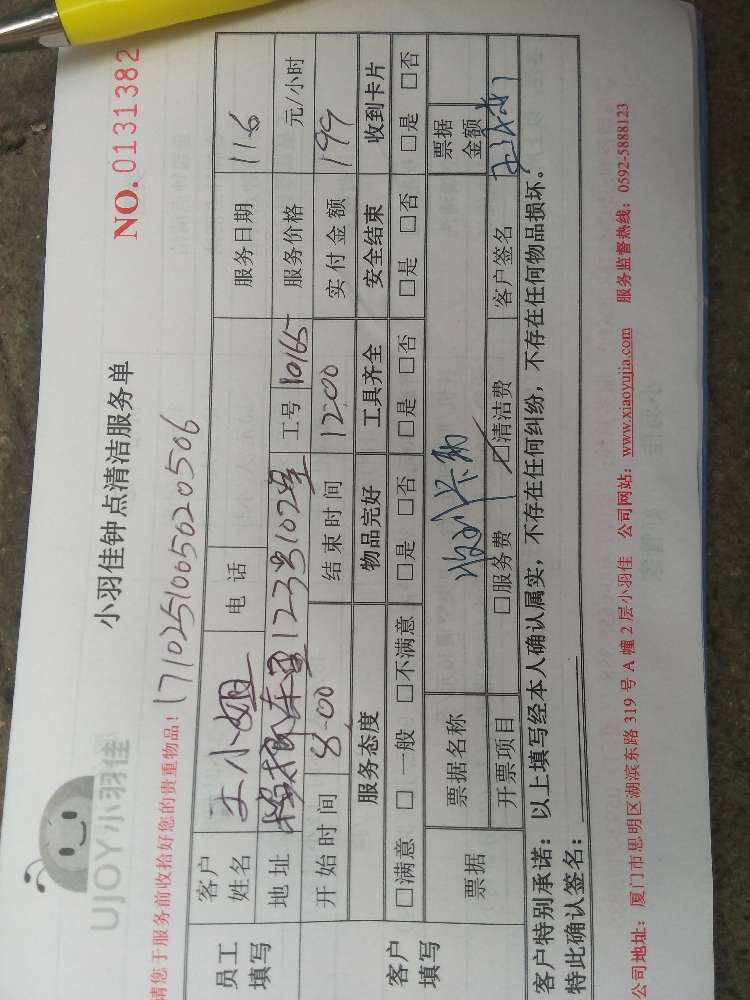 UJOY小羽佳
小羽佳钟点清洁服务单
NO.0131382
请您于服务前收拾好您的贵重物品!
1710251005620506
员工填写
客户姓名 王小姐 电话 服务日期 116
地址 东里123号102室 工号 10165 服务价格 元/小时
开始时间 8:00 结束时间 12:00 实付金额 199
客户填写
服务态度 物品完好 工具齐全 安全结束 收到卡片
□满意 □一般 □不满意 □是 □否 □是 □否 □是 □否 □是 □否
票据 票据名称 票据金额
开票项目 □服务费 □清洁费 客户签名
客户特别承诺:以上填写经本人确认属实,不存在任何纠纷,不存在任何物品损坏。
特此确认签名:
公司地址:厦门市思明区湖滨东路 319 号 A 幢 2 层小羽佳 公司网站:www.xiaoyujia.com 服务监督热线:0592-5888123